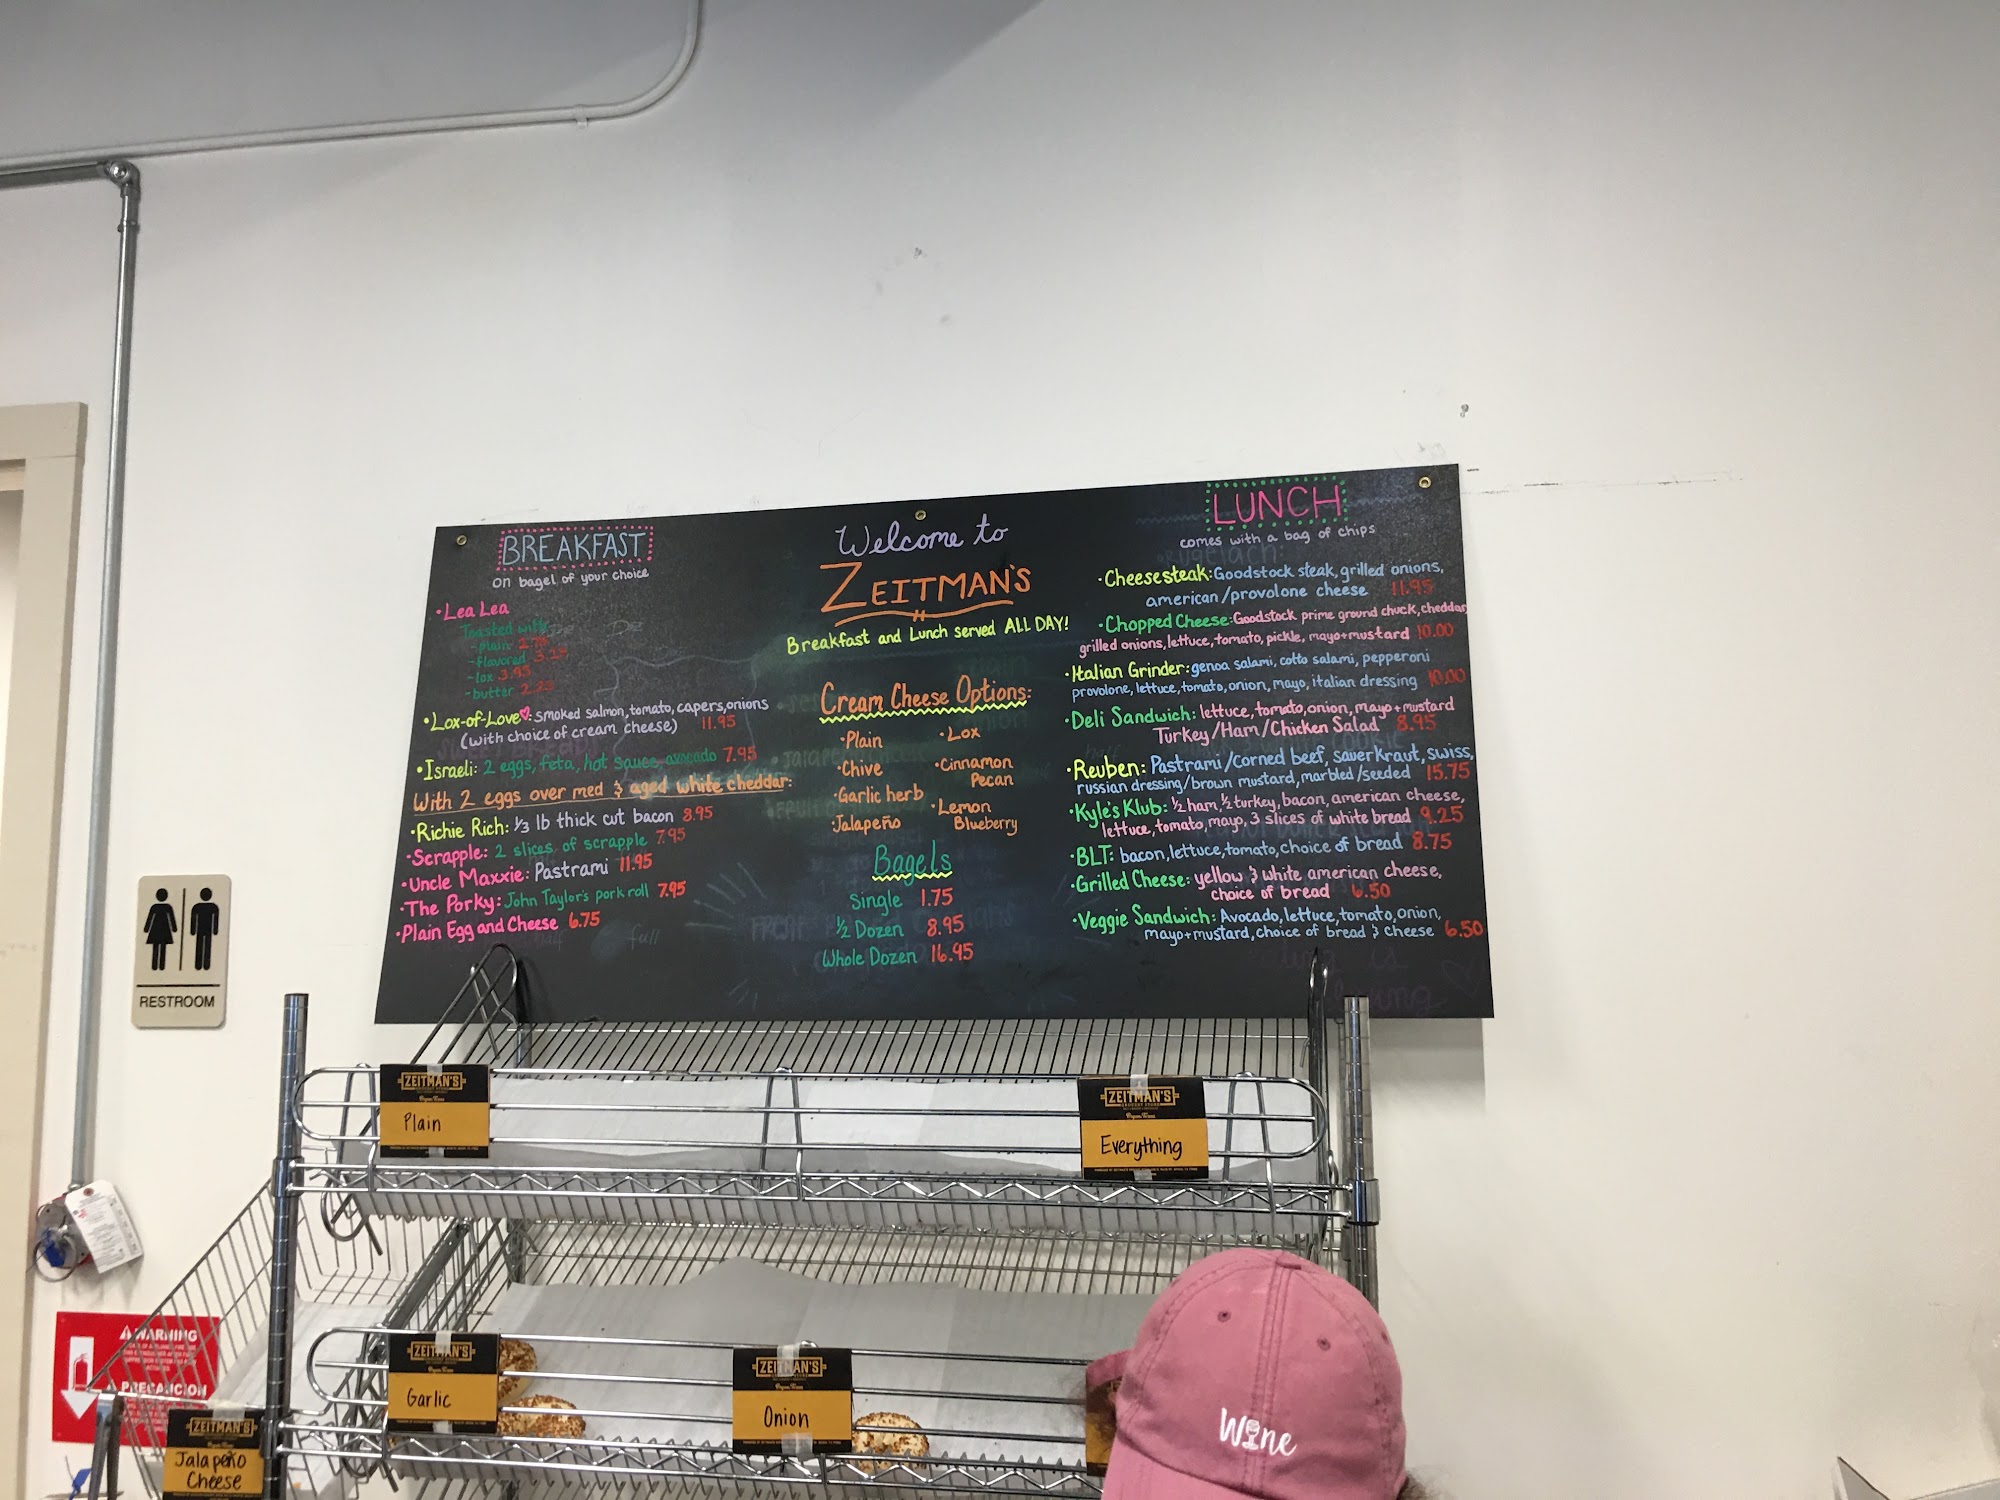 BREAKFAST
on bagel of your choice
• Lea Lea
Toasted with
- plain
- flavored
- lox 3.95
- butter
• Lox-of-Love: smoked salmon, tomato, capers, onions
(with choice of cream cheese) 11.95
• Israeli: 2 eggs, feta, hot sauce, avocado 7.95
With 2 eggs over med & aged white cheddar:
• Richie Rich: 1/3 lb thick cut bacon 8.95
• Scrapple: 2 slices of scrapple 7.95
• Uncle Maxxie: Pastrami 11.95
• The Porky: John Taylor's pork roll 7.95
• Plain Egg and Cheese 6.75
Welcome to
ZEITMAN'S
Breakfast and Lunch served ALL DAY!
Cream Cheese Options:
• Plain
• Chive
• Garlic herb
• Jalapeño
• Lox
• Cinnamon
Pecan
• Lemon
Blueberry
Bagels
Single 1.75
1/2 Dozen 8.95
Whole Dozen 16.95
LUNCH
comes with a bag of chips
• Cheesesteak: Goodstock steak, grilled onions,
american/provolone cheese 11.95
• Chopped Cheese: Goodstock prime ground chuck, cheddar,
grilled onions, lettuce, tomato, pickle, mayo+mustard 10.00
• Italian Grinder: genoa salami, cotto salami, pepperoni
provolone, lettuce, tomato, onion, mayo, italian dressing 10.00
• Deli Sandwich: lettuce, tomato, onion, mayo+mustard
Turkey/Ham/Chicken Salad 8.95
• Reuben: Pastrami/corned beef, sauerkraut, swiss,
russian dressing/brown mustard, marbled/seeded 15.75
• Kyle's Klub: 1/2 ham, 1/2 turkey, bacon, american cheese,
lettuce, tomato, mayo, 3 slices of white bread 9.25
• BLT: bacon, lettuce, tomato, choice of bread 8.75
• Grilled Cheese: yellow & white american cheese,
choice of bread 6.50
• Veggie Sandwich: Avocado, lettuce, tomato, onion,
mayo+mustard, choice of bread & cheese 6.50
RESTROOM
ZEITMAN'S
GROCERY STORE
Bryan, Texas
Plain
ZEITMAN'S
GROCERY STORE
Bryan, Texas
Everything
WARNING
PRECAUCION
ZEITMAN'S
Garlic
ZEITMAN'S
Onion
ZEITMAN'S
Jalapeño
Cheese
Wine